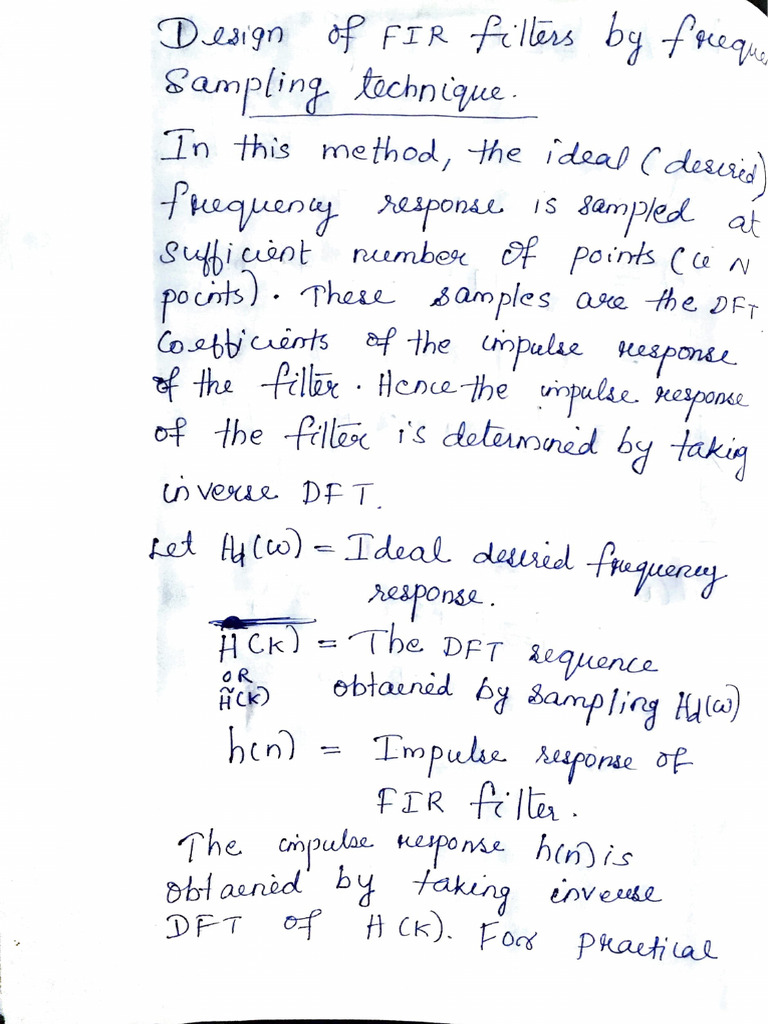 Design of FIR filters by freque
Sampling technique.
In this method, the ideal (desired)
frequency response is sampled at
sufficient number of points (ie N
points). These samples are the DFT
Coefficients of the impulse response
of the filter. Hence the impulse response
of the filter is determined by taking
inverse DFT.
Let Hd(ω) = Ideal desired frequency
response.
H(K) = The DFT sequence
OR
H̃(K) obtained by sampling Hd(ω)
h(n) = Impulse response of
FIR filter.
The impulse response h(n) is
obtained by taking inverse
DFT of H(K). For practical